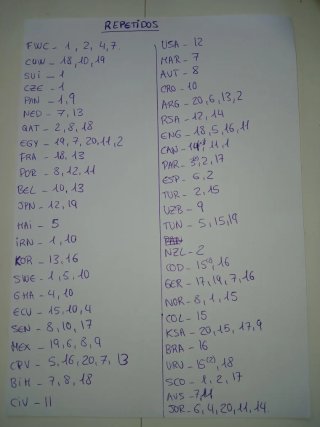 REPETIDOS
FWC - 1, 2, 4, 7.
CUW - 18, 10, 19
SUI - 1
CZE - 1
PAN - 1, 9
NED - 7, 13
QAT - 2, 8, 18
EGY - 19, 7, 20, 11, 2
FRA - 18, 13
POR - 8, 12, 11
BEL - 10, 13
JPN - 12, 19
HAI - 5
IRN - 1, 10
KOR - 13, 16
SWE - 1, 5, 10
GHA - 4, 10
ECU - 15, 10, 4
SEN - 8, 10, 17
MEX - 19, 6, 8, 9
CPV - 5, 16, 20, 7, 13
BIH - 7, 8, 18
CIV - 11
USA - 12
MAR - 7
AUT - 8
CRO - 10
ARG - 20, 6, 13, 2
RSA - 12, 14
ENG - 18, 5, 16, 11
CAN - 11, 1
PAR - 3, 2, 17
ESP - 6, 2
TUR - 2, 15
UZB - 9
TUN - 5, 15, 19
NZL - 2
COD - 15, 16
GER - 17, 19, 7, 16
NOR - 8, 1, 15
COL - 15
KSA - 20, 15, 17, 9
BRA - 16
URU - 15(2), 18
SCO - 1, 2, 17
AUS - 7, 11
JOR - 6, 4, 20, 11, 14